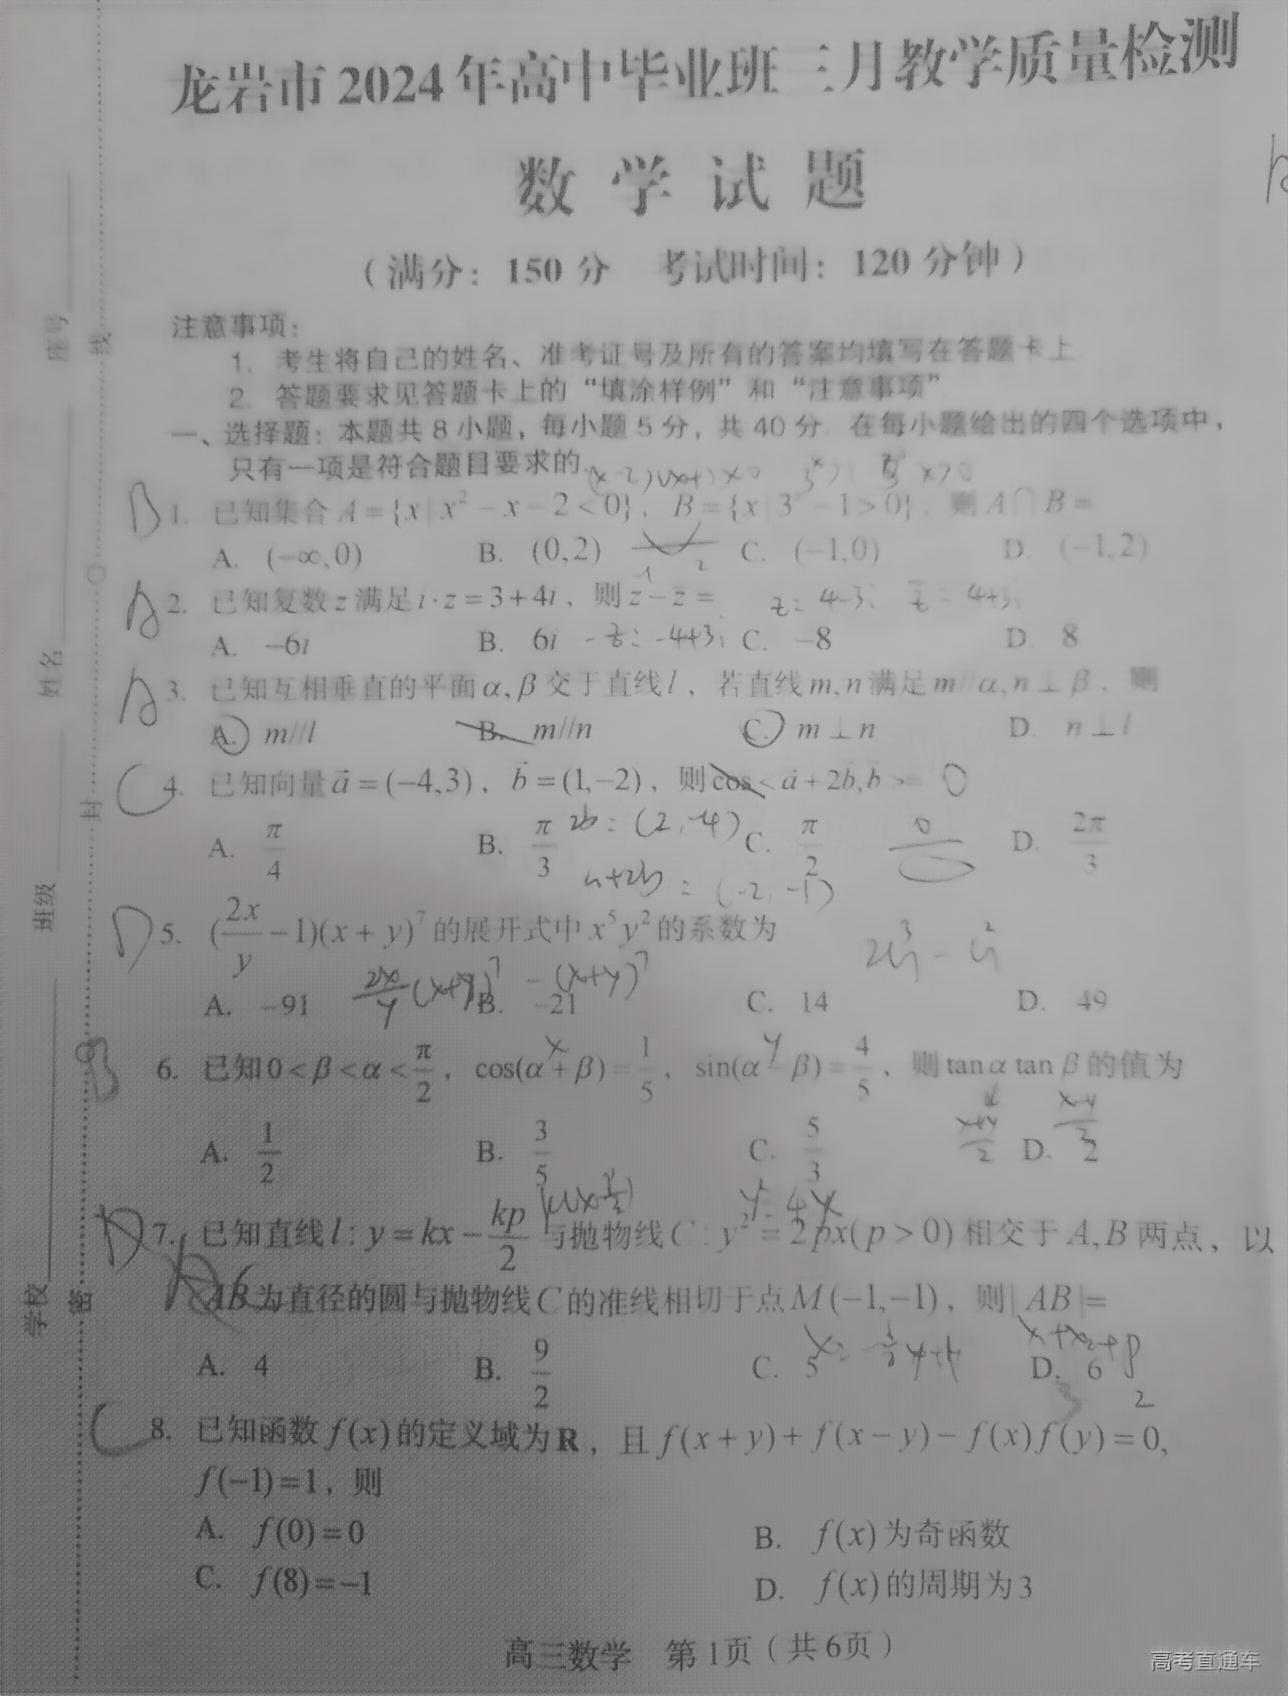 龙岩市2024年高中毕业班三月教学质量检测
数学试题
（满分：150分 考试时间：120分钟）
注意事项：
1. 考生将自己的姓名、准考证号及所有的答案均填写在答题卡上
2. 答题要求见答题卡上的“填涂样例”和“注意事项”
一、选择题：本题共8小题，每小题5分，共40分 在每小题给出的四个选项中，
只有一项是符合题目要求的.
(x-2)(x+1)<0 x>0
B 1. 已知集合A={x|x²-x-2<0}，B={x|3ˣ-1>0}，则A∩B=
A. (-∞,0) B. (0,2) C. (-1,0) D. (-1,2)
-1 2
A 2. 已知复数z满足i·z=3+4i，则z-z̄= z=4-3i z̄=4+3i
A. -6i B. 6i -z̄=-4+3i C. -8 D. 8
A 3. 已知互相垂直的平面α,β交于直线l，若直线m,n满足m//α,n⊥β，则
A. m//l B. m//n C. m⊥n D. n⊥l
C 4. 已知向量a=(-4,3)，b=(1,-2)，则cos<a+2b,b>= 0
A. π/4 B. π/3 2b=(2,-4) C. π/2 D. 2π/3
a+2b=(-2,-1)
D 5. (2x/y-1)(x+y)⁷的展开式中x⁵y²的系数为
2x/y(x+y)⁷-(x+y)⁷
A. -91 B. -21 C. 14 D. 49
B 6. 已知0<β<α<π/2，cos(α+β)=1/5，sin(α-β)=4/5，则tanα tanβ的值为
x y x+y/2 x-y/2
A. 1/2 B. 3/5 C. 5/3 D. 2
y²=4x
D 7. 已知直线l:y=kx-kp/2与抛物线C:y²=2px(p>0)相交于A,B两点，以
AB为直径的圆与抛物线C的准线相切于点M(-1,-1)，则|AB|=
x₁+x₂+p
A. 4 B. 9/2 C. 5 D. 6
3 2
C 8. 已知函数f(x)的定义域为R，且f(x+y)+f(x-y)-f(x)f(y)=0,
f(-1)=1，则
A. f(0)=0 B. f(x)为奇函数
C. f(8)=-1 D. f(x)的周期为3
高三数学 第1页（共6页）
座号
姓名
班级
学校
线
封
密
高考直通车